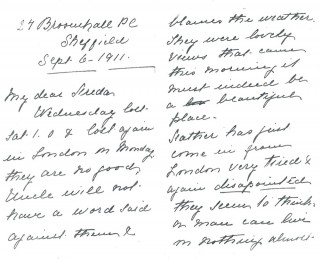 27 Broomhall Pl
Sheffield
Sept. 6 - 1911.
My dear
Wednesday lost
Sat. 1.0 & lost again
in London on Monday
they are no good,
Uncle will not
have a word said
against them &
blames the weather.
They were lovely
views that came
this morning it
must indeed be
a beautiful
place.
Father has just
come in from
London very tired &
again disappointed
they seem to think
a man can live
on nothing almost.